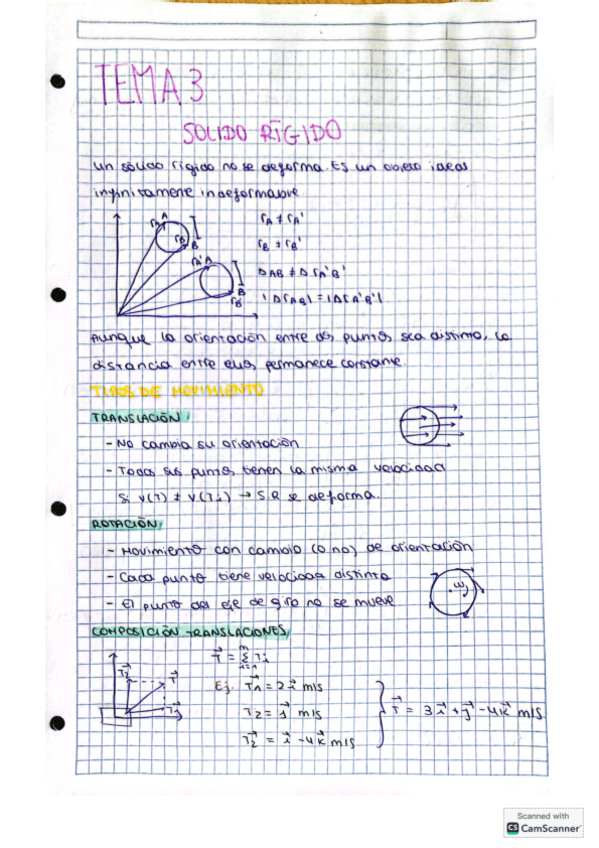 TEMA 3
SOLIDO RÍGIDO
un sólido rígido no se deforma. Es un objeto ideal
infinitamente indeformable
A
rA
rB
B
rA'
A
B
rB'
rA ≠ rA'
rB ≠ rB'
ΔAB ≠ ΔrA'B'
|ΔrAB| = |ΔrA'B'|
Aunque la orientación entre dos puntos sea distinto, la
distancia entre ellos permanece constante.
TIPOS DE MOVIMIENTO
TRANSLACIÓN:
- No cambia su orientación
- Todos sus puntos tienen la misma velocidad
Si V(T) ≠ V(Ti) → S.R se deforma.
ROTACIÓN:
- Movimiento con cambio (o no) de orientación
- Cada punto tiene velocidad distinta
- El punto del eje de giro no se mueve
ω
COMPOSICIÓN TRANSLACIONES:
T⃗2
T⃗
T⃗1
T⃗ = Σ Ti
Ej. T⃗1 = 2i⃗ m/s
T2 = j⃗ m/s
T⃗2 = i⃗ - 4k⃗ m/s
T⃗ = 3i⃗ + j⃗ - 4k⃗ m/s
Scanned with
CS CamScanner